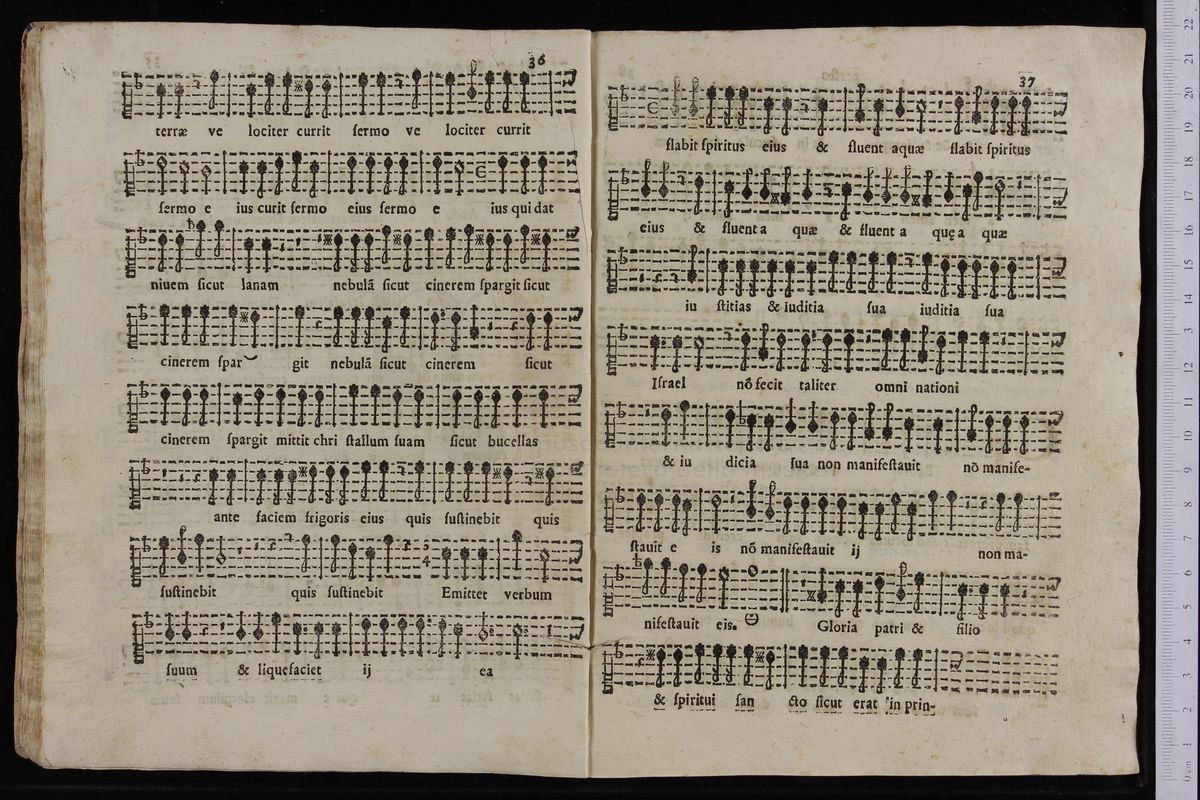 36
terræ ve lociter currit ſermo ve lociter currit
ſermo e ius curit ſermo eius ſermo e ius qui dat
niuem ſicut lanam nebulã ſicut cinerem ſpargit ſicut
cinerem ſpar git nebulã ſicut cinerem ſicut
cinerem ſpargit mittit chri ſtallum ſuam ſicut bucellas
ante faciem frigoris eius quis ſuſtinebit quis
ſuſtinebit quis ſuſtinebit Emittet verbum
ſuum & liquefaciet ij ea
37
flabit ſpiritus eius & fluent aquæ flabit ſpiritus
eius & fluent a quæ & fluent a quę a quæ
iu ſtitias & iuditia ſua iuditia ſua
Iſrael nõ fecit taliter omni nationi
& iu dicia ſua non manifeſtauit nõ manife-
ſtauit e is nõ manifeſtauit ij non ma-
nifeſtauit eis. Gloria patri & filio
& ſpiritui ſan cto ſicut erat in prin-